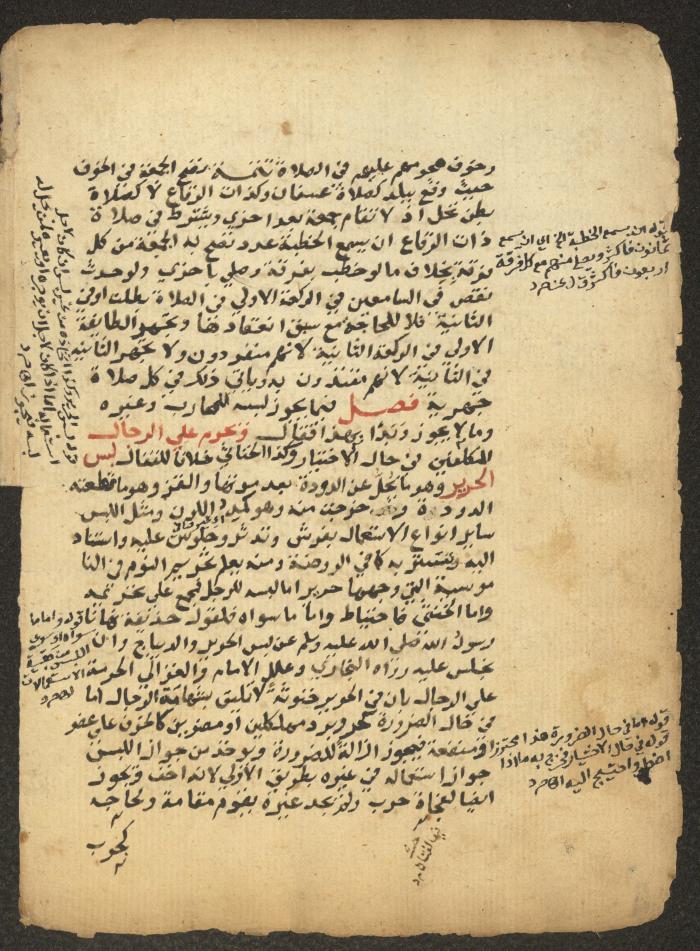 وخوف هجومهم عليهم في الصلاة تتمة تصح الجمعة في الخوف
حيث وقع ببلد كصلاة عسفان وكذات الرقاع لا كصلاة
بطن نخل اذ لا تقام جمعة بعد اخري ويشترط في صلاة
ذات الرقاع ان يسمع الخطبة عدد تصح به الجمعة من كل
فرقة بخلاف ما لو خطب بفرقة وصلي باخري ولو حدث
نقص في السامعين في الركعة الاولي في الصلاة بطلت او في
الثانية فلا للحاجة مع سبق انعقادها وتجهر الطايفة
الاولي في الركعة الثانية لانهم منفردون ولا تجهر الثانية
في الثانية لانهم مقتدون به وياتي ذلك في كل صلاة
جهرية فصل فيما يجوز لبسه للمحارب وغيره
وما لا يجوز وبدا بهذا فقال ويحرم علي الرجال
المكلفين في حال الاختيار وكذا الخناثي خلافا للقفال لبس
الحرير وهو ما يحل عن الدودة بعد موتها والقز وهو ما قطعته
الدودة وخرجت منه وهو كمد اللون ومثل اللبس
ساير انواع الاستعمال بفرش وتدثر وجلوس عليه واستناد
اليه وتستر به كما في الروضة ومنه يعلم تحريم النوم في النا
موسية التي وجهها حرير اما لبسه للرجل فمجمع علي تحريمه
واما الخنثي فاحتياط واما ما سواه فلقول حذيفة نهانا
رسول الله صلي الله عليه وسلم عن لبس الحرير والديباج وان
نجلس عليه رواه البخاري وعلل الامام والغزالي الحرمة
علي الرجال بان في الحرير خنوثة لا تليق بشهامة الرجال اما
في حال الضرورة كحر وبرد مهلكين او مضرين كالخوف علي عضو
او منفعة فيجوز ازالة للضرورة ويوخذ من جواز اللبس
جواز استعماله في غيره بطريق الاولي لانه اخف ويجوز
ايضا لفجاة حرب ولم يجد غيره يقوم مقامه ولحاجة
كجرب
قوله ان يسمع الخطبة الخ اي ان يسمع
ثمانون فاكثر ويصلي منهم مع كل فرقة
اربعون فاكثر
قوله واما ما
سواه اي سوي
اللبس من بقية
الاستعمالات
قوله اما في حال الضرورة هذا محترز
قوله في حال الاختيار فرج به ما اذا
اضطر واحتيج اليه